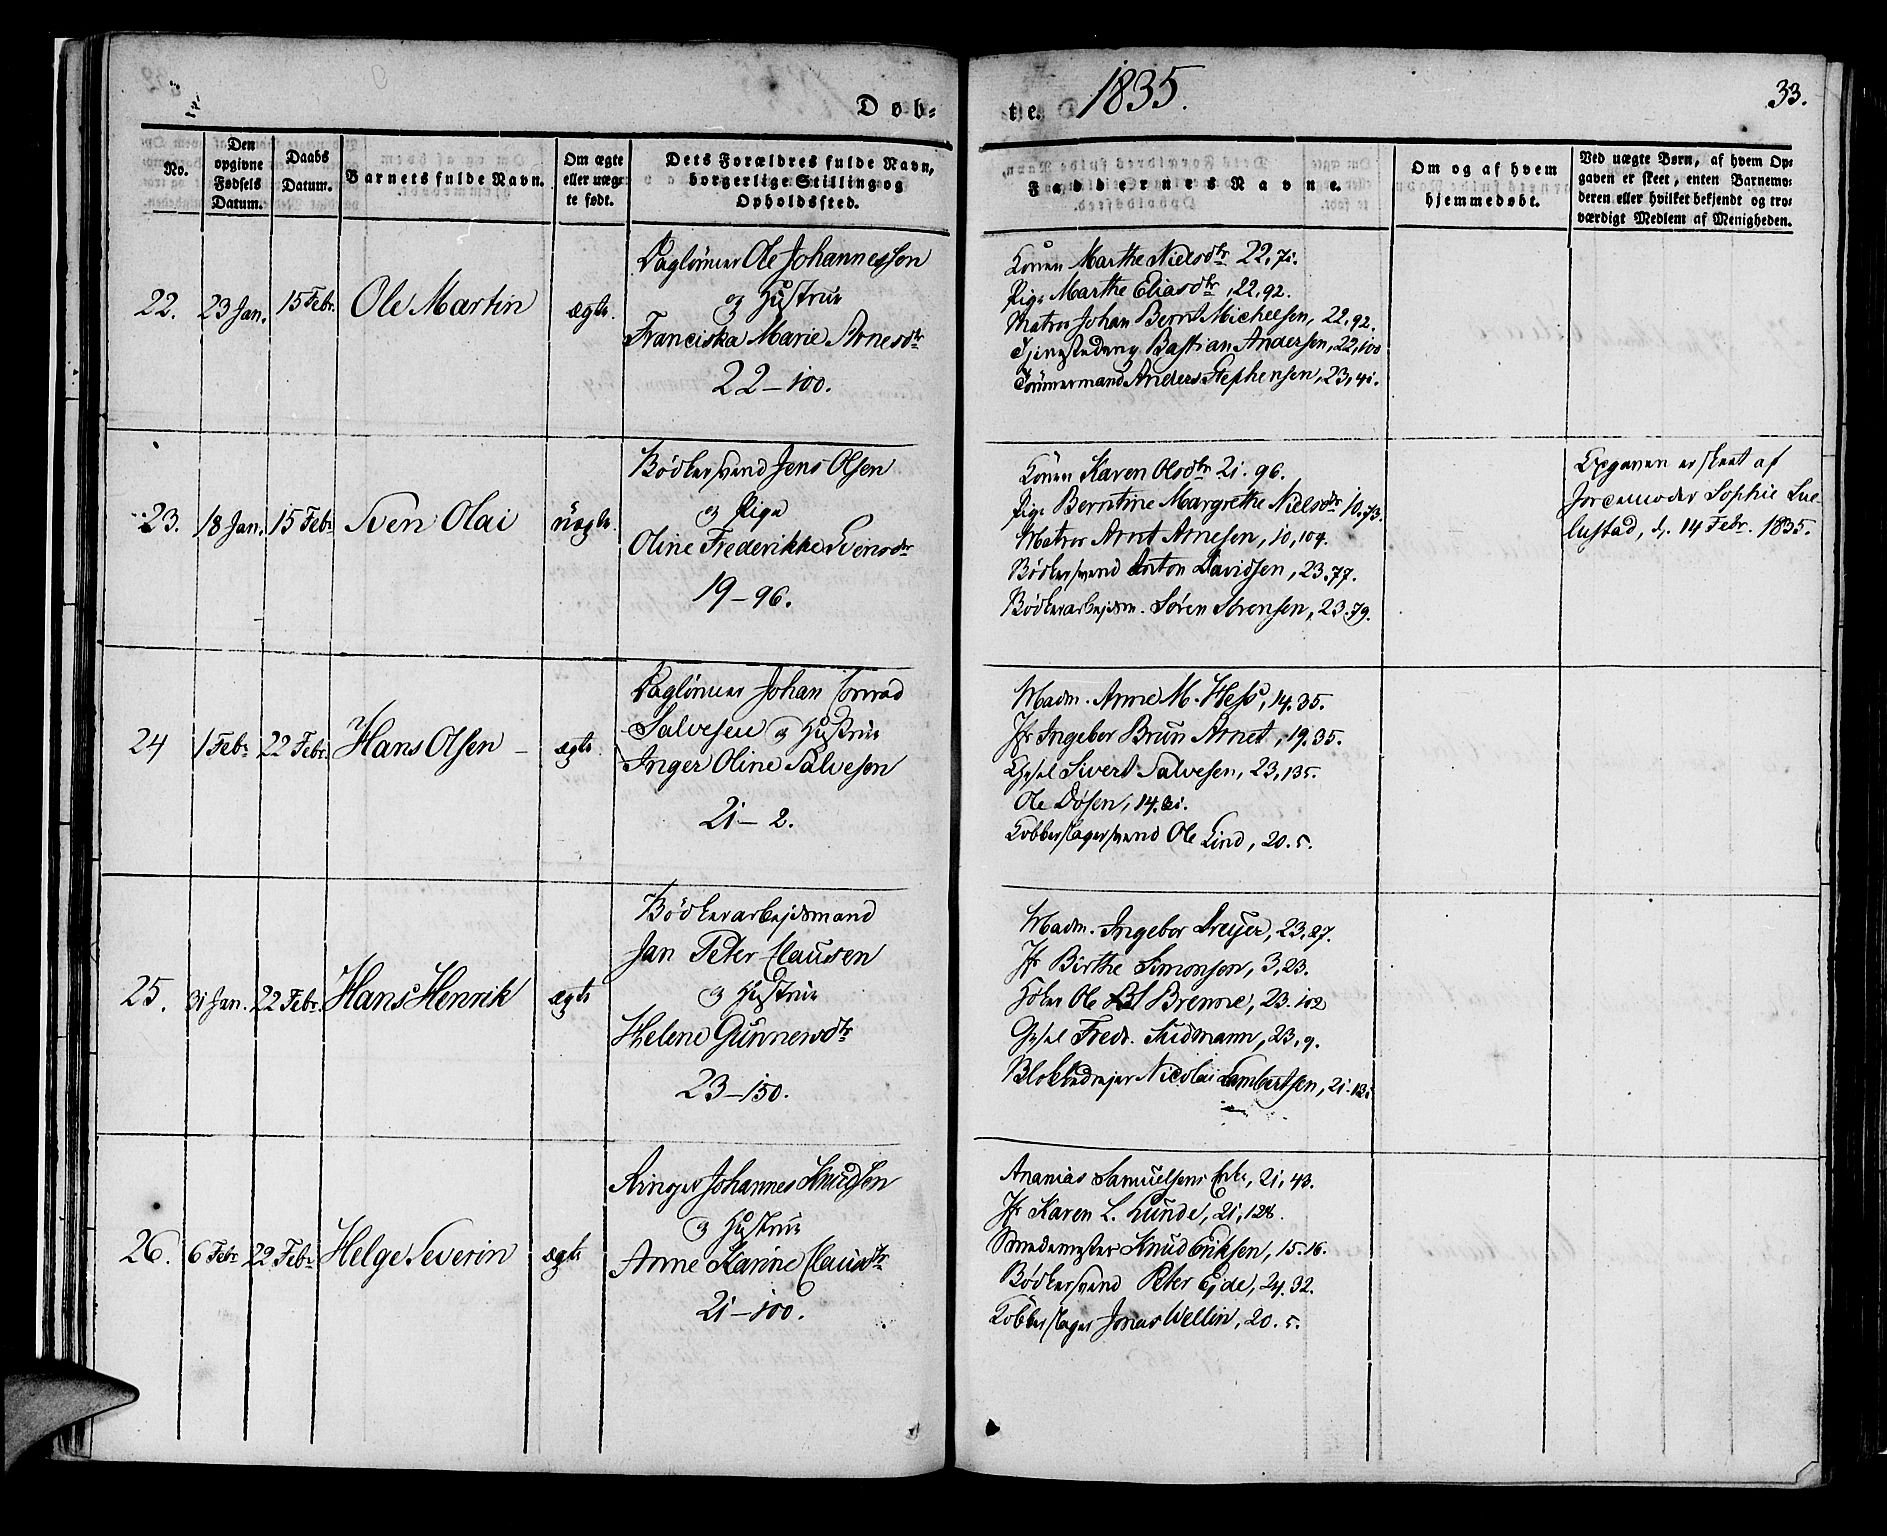 Døb-
te. 1835.
33.
No.
Den opgivne Fødsels Datum.
Daabs Datum.
Barnets fulde Navn.
Om ægte eller uægte født.
Dets Forældres fulde Navn, borgerlige Stilling og Opholdssted.
Faddernes Navne.
Om og af hvem hjemmedøbt.
Ved uægte Børn, af hvem Op-
gaven er skeet, enten Barnemo-
deren eller hvilket bekjendt og tro-
værdigt Medlem af Menigheden.
22. 23 Jan. 15 Febr. Ole Martin ægte.
Dagløner Ole Johannesson
og Hustrue
Franciska Marie Arnesdtr
22-100.
Konen Marthe Nielsdtr 22,71.
Pige Marthe Eliasdtr, 22,92.
Matros Johan Bernt Micheelsen, 22,92.
Bastian Andersen, 22,100
Tømmermand Anders Stephensen, 23,41.
23. 18 Jan. 15 Febr Sven Olai uægte.
Bødkersvend Jens Olsen
og Pige
Oline Frederikke Svensdr
19-96.
Konen Karen Olsdtr 21. 96.
Pige Berntine Margrethe Nielsdr 10,73.
Matros Arnt Arnesen, 10,104.
Bødkersvend Anton Davidsen, 23.77.
Bødkerarbejdsm. Søren Sørensen, 23.79.
Opgaven er skeet af
Jordemoder Sophie Lue-
lustad, d. 14 Febr. 1835.
24 1 Febr 22 Febr. Hans Olsen ægte.
Dagløner Johan Conrad
Salvesen og Hustrue
Inger Oline Salveson
21-2.
Madm. Anne M. Hess, 14.35.
Jfr Ingebor Brun Arnet, 19.35.
Sivert Salvesen, 23,135.
Ole Døsen, 14.
Kobberslagersvend Ole Lind, 20.5.
25. 31 Jan. 22 Febr. Hans Henrik ægte
Bødkerarbejdsmand
Jan Peter Clausen
og Hustrue
Helene Gunnersdtr
23-150.
Madm. Ingebor Dreyer, 23,27.
Jfr Birthe Simonson, 3,23.
Ole Brenne, 23.102
Fredr. Suidmann, 23,9.
Blokkedrejer Nicolai Lambertsen, 21-
26. 6 Febr 22 Febr Helge Severin ægte
Ringer Johannes Knudsen
og Hustrue
Anne Karine Clausdtr
21-100.
Ananias Samuelsens Enke, 21,43.
Jfr Karen L. Lunde, 21,128.
Smedemester Knud Eriksen, 15.16.
Bødkersvend Peter Eide, 24.32.
Kobberslager Jonas Wellin, 20.5.